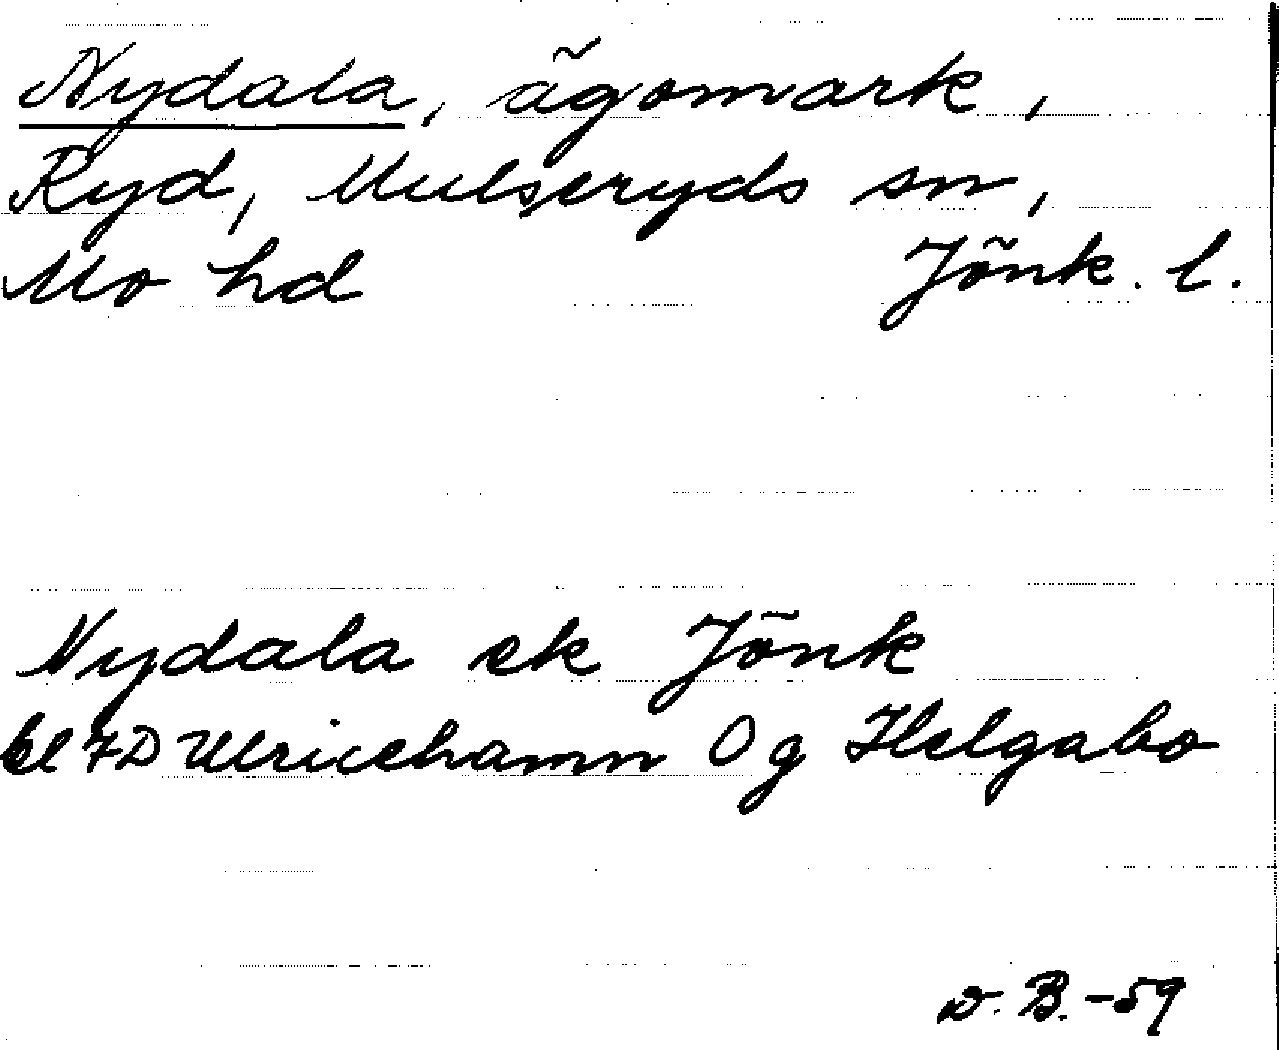 Nydala, ägomark,
Ryd, Mulseryds sn,
Mo hd Jönk. l.
Nydala ek Jönk
bl 7D Ulricehamn Og Helgabo
D. B. -59